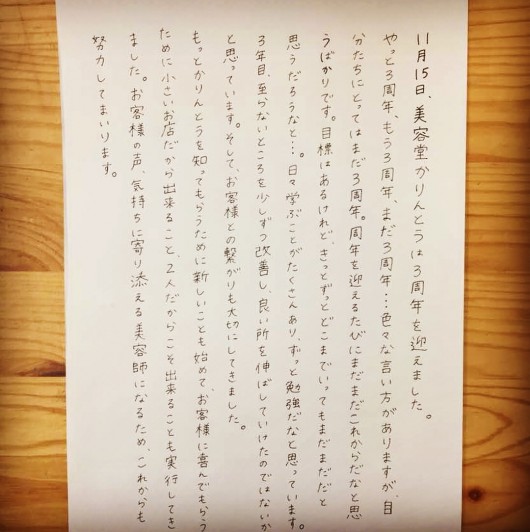 11月15日、美容堂かりんとうは3周年を迎えました。
やっと3周年、もう3周年、まだ3周年…色々な言い方がありますが、自
分たちにとってはまだ3周年。周年を迎えるたびにまだまだこれからだなと思
うばかりです。目標はあるけれど、きっとずっとどこまでいってもまだまだだと
思うだろうなと…。日々学ぶことがたくさんあり、ずっと勉強だなと思っています。
3年目、至らないところを少しずつ改善し、良い所を伸ばしていけたのではないか
と思っています。そして、お客様との繋がりも大切にしてきました。
もっとかりんとうを知ってもらうために新しいことも始めて、お客様に喜んでもらう
ために小さいお店だから出来ること、2人だからこそ出来ることも実行してき
ました。お客様の声、気持ちに寄り添える美容師になるため、これからも
努力してまいります。